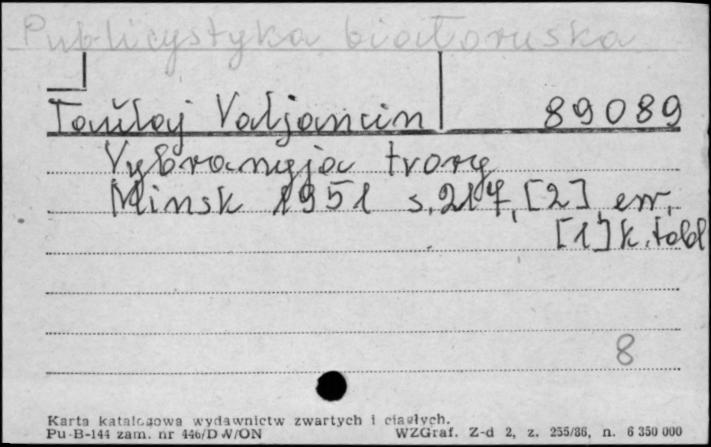 Publicystyka białoruska
Taŭłaj Valjancin 89089
Vybranyja tvory
Minsk 1951 s. 217, [2], err.
[1] k. tabl
8
Karta katalogowa wydawnictw zwartych i ciągłych.
Pu-B-144 zam. nr 446/DW/ON WZGraf. Z-d 2, z. 255/86, n. 6 350 000